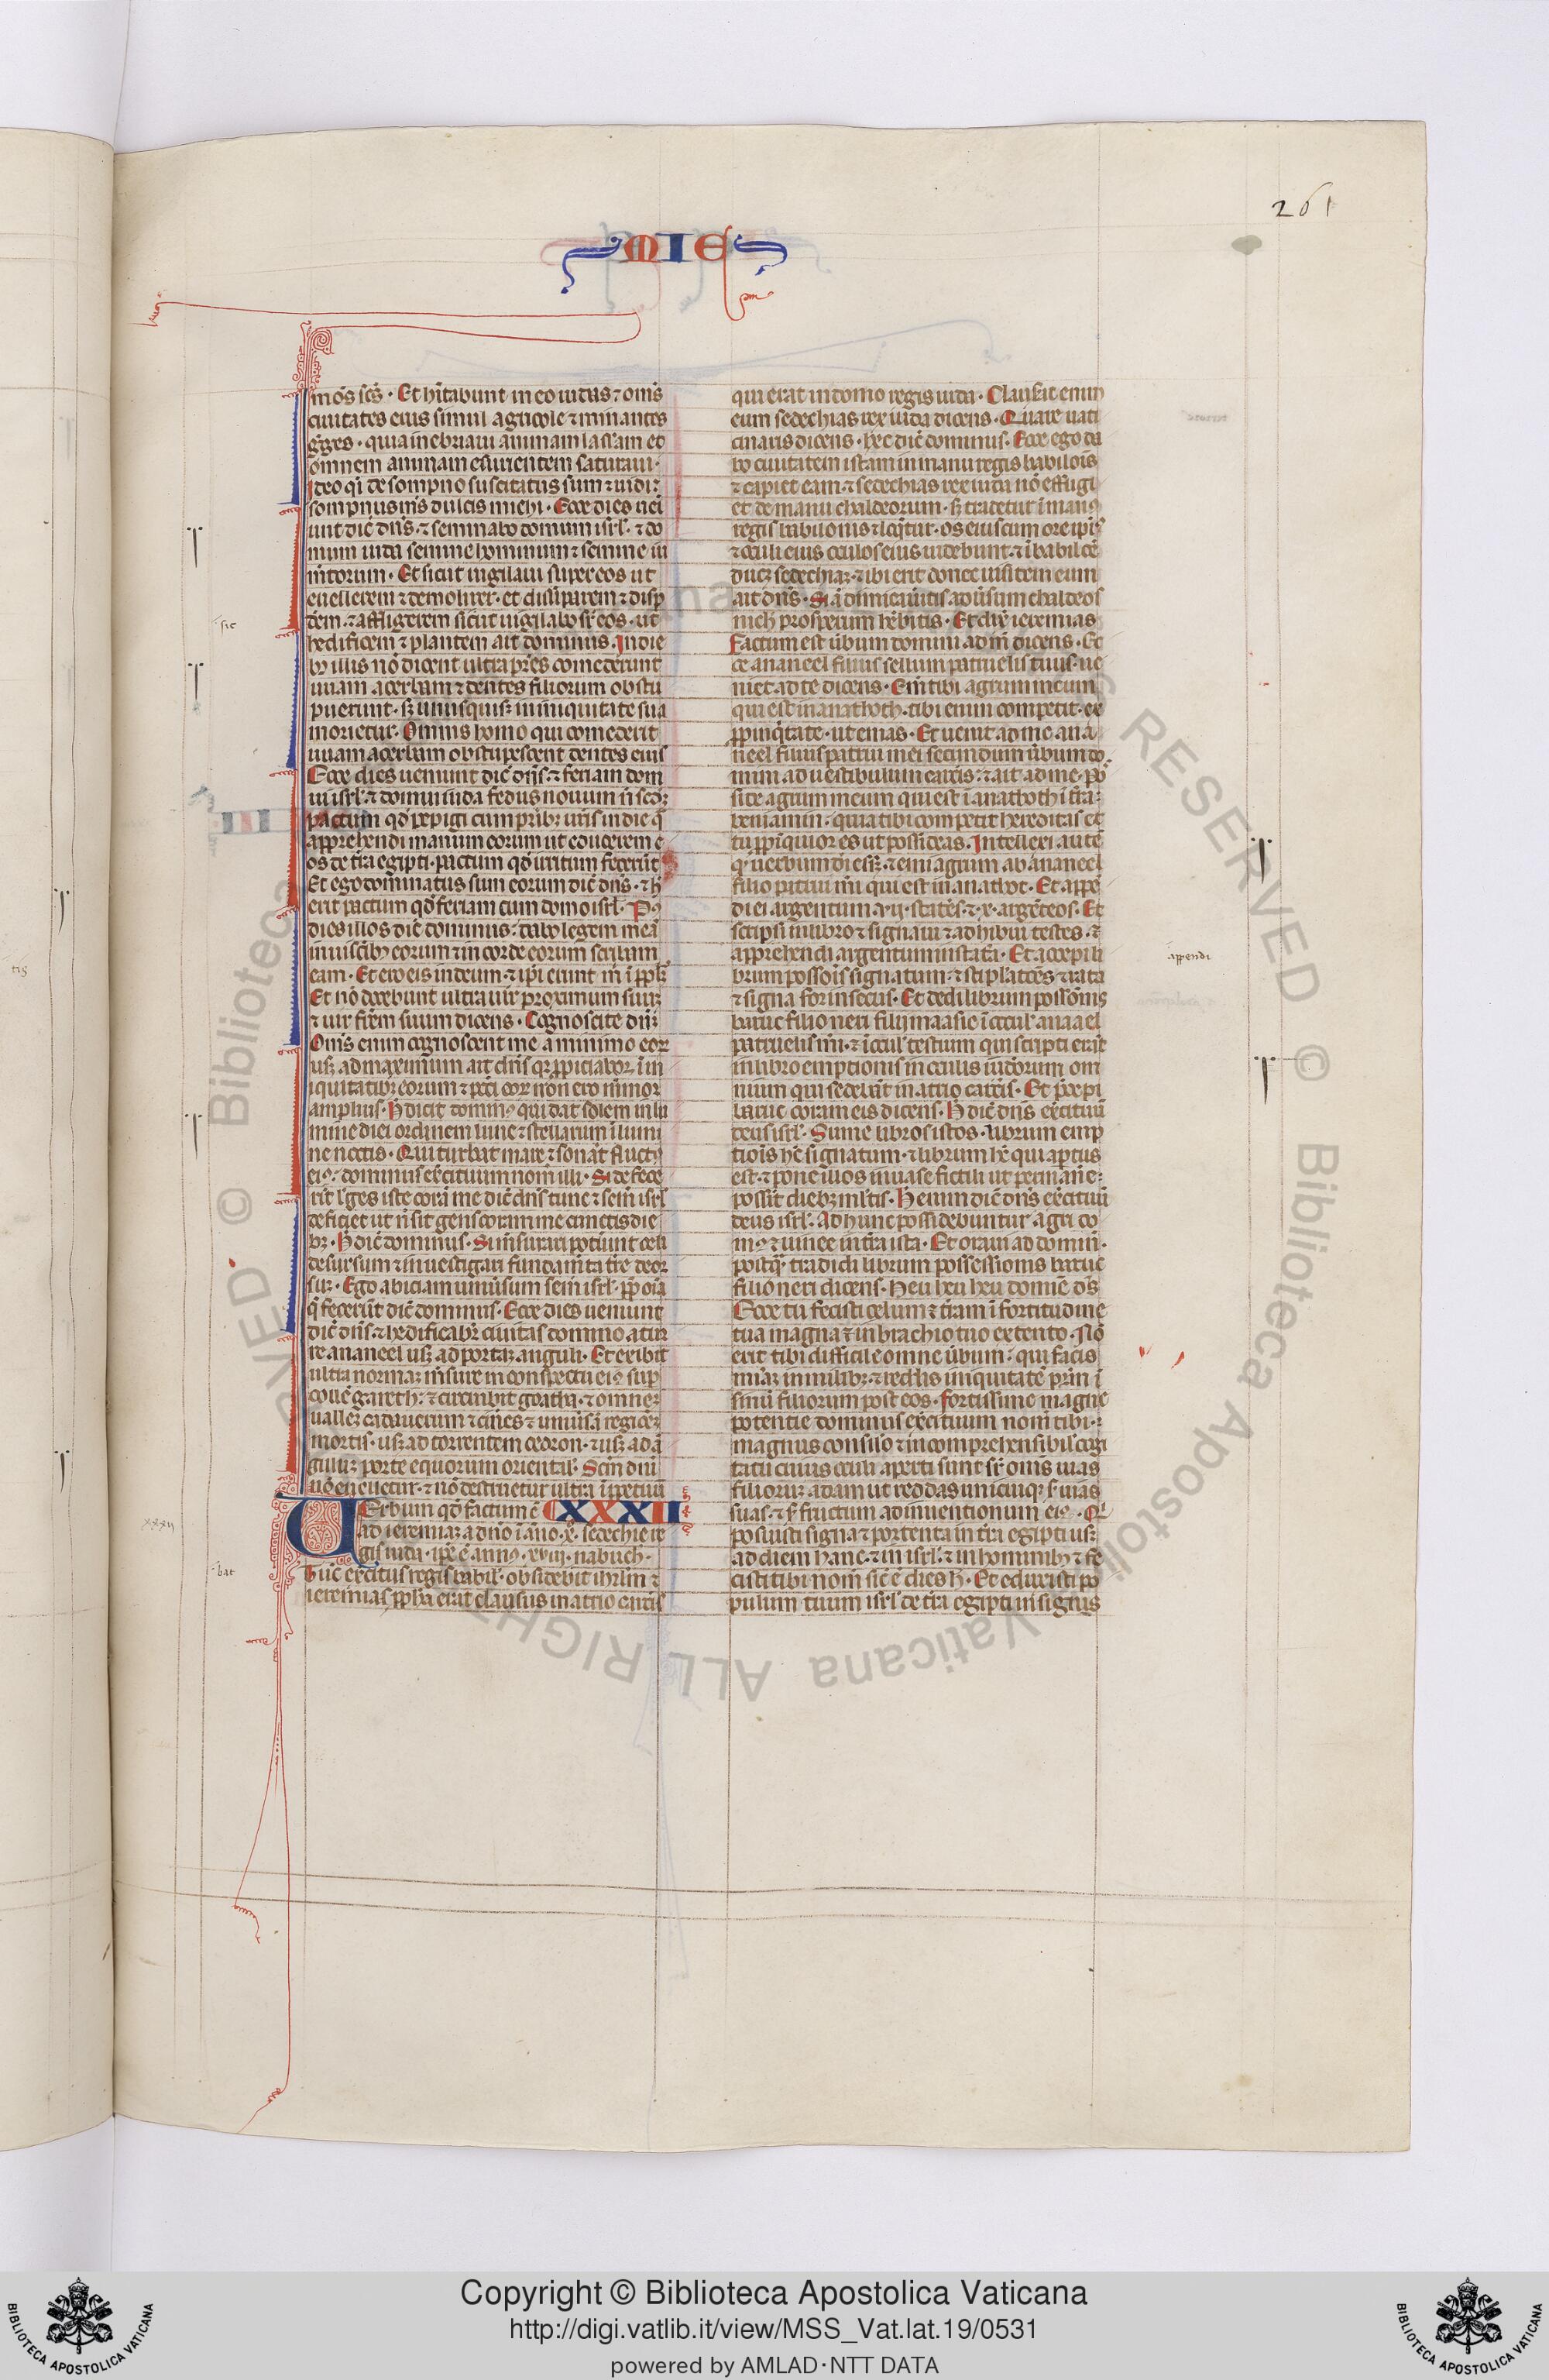 261
MIE
mōs scs̄ · Et hītabunt in eo iudas ⁊ om̄s
ciuitates eius simul agricole ⁊ minantes
g̃ges · quia inebriaui animam lassam et
omnem animam esurientem saturaui ·
Ideo qͥ de sompno suscitatus sum ⁊ uidi :
sompnus mͥs dulcis michi · Ecce dies uei
unt dic̄ dn̄s · ⁊ seminabo domum isrl̄ · ⁊ do
mum iuda semine hominum ⁊ semine iu
mtorum · Et sicut uigilaui super eos ut
euellerem ⁊ demolirer · et dissiparem ⁊ disp̄
dem · ⁊ affligerem sicut uigilabo sr̄ eos · ut
hedificem ⁊ plantem ait dominus · In die
bꝫ illis nō dicent ultra pr̄es comederunt
uuam acerbam ⁊ dentes filiorum obstu
puerunt · sꝫ unusquisqꝫ in iniquitate sua
morietur · Omnis homo qui comederit
uuam acerbam obstupescent dentes eius
Ecce dies uenient dic̄ dn̄s · ⁊ feriam dom
ui isrl̄ · ⁊ domui iuda fedus nouum n̄ scd̄ꝫ
pactum qd̄ pepigi cum pr̄ibꝫ ur̄is in die qͣ
apprehendi manum eorum ut educerem e
os de tr̄a egipti · pactum qd̄ irritum fecerūt
Et ego dominatus sum eorum dic̄ dn̄s · ⁊ h̄
erit pactum qd̄ feriam cum domo isrl̄ · Pꝰ
dies illos dic̄ dominus : dabo legem meā
in uisc̄ibꝫ eorum ⁊ in corde eorum scribam
eam · Et ero eis in deum · ⁊ ip̄i erunt m̄ ī ppl̄m
Et nō docebunt ultra uir proximum suūꝫ
⁊ uir fr̄em suum dicens · Cognoscite dn̄ꝫ
Om̄s enim cognoscent me a minimo eoꝝ
usqꝫ ad maximum ait dn̄s qꝛ ꝓpiciaboꝛ ī in
iquitatibꝫ eorum ⁊ pcc̄i eoꝝ non ero mīmor
amplius · H̄ dicit dominꝰ qui dat solem in lu
mine diei ordinem lune ⁊ stellarum ī lumi
ne noctis · Qui turbat mare ⁊ sonāt fluctꝰ
eiꝰ : dominus exc̄ituum nom̄ illi · Si defece
rīt l̄ges iste corā me dic̄ dn̄s tunc ⁊ sem̄ isrl̄
deficiet ut n̄ sit gens coram me cunctis die
bꝫ · H̄ dic̄ dominus · Si m̄surari potīunt celi
desursum ⁊ inuestigari fundam̄ta tr̄e deoꝛ
suꝫ · Ego abiciam uniūsum sem̄ isrl̄ · ꝓp̄ oīa
q̄ fecerūt dic̄ dominus · Ecce dies ueniunt
dic̄ dn̄s · ⁊ hedificabr̄ ciuitas domino a tur
re ananeel usqꝫ ad portaꝫ anguli · Et exibit
ultra normaꝫ m̄sure in conspectu eiꝰ sup̄
collē gareth : ⁊ circuibit goatha · ⁊ omneꝫ
ualleꝫ cadauerum ⁊ cin̄es ⁊ uniūsā regionꝫ
mortis · usqꝫ ad torrentem cedron · ⁊ usqꝫ ad ā
guluꝫ porte equorum oriental̄ · Sc̄m dn̄i
nō euelletur · ⁊ nō destruetur ultra ī ꝑpetuū
VErbum qd̄ factum ē XXXII
ad ieremiaꝫ a dn̄o ī ano · x̊ · sedechie re
gis iuda · ip̄e ē annꝰ · xviij · nabuch ·
Tūc exercitus regis babil̄ · obsidebat ihrl̄m ⁊
ieremias ꝓpha erat clausus in atrio carc̄is
qui erat in domo regis iuda · Clausit enim
eum sedechias rex iuda dicens · Quare uati
cinaris dicens · hec dic̄ dominus · Ecce ego da
bo ciuitatem istam in manu regis babilois̄
⁊ capiet eam · ⁊ sedechias rex iuda nō effugi
et de manu chaldeorum · sꝫ tradetur ī manꝰ
regis babilonis ⁊ loq̄tur · os eius cum ore ipiꝰ
⁊ oculi eius oculos eius uidebunt · ⁊ ī babilōē
ducꝫ sedechiaꝫ · ⁊ ibi erit donec uisitem eum
ait dn̄s · Si ā dimicauitis adūsum chaldeos
nich̄ prosperum hēbitis · Et dix̄ ieremias
Factum est ūbum domini ad m̄ dicens · Ec
ce ananeel filius sellum patruelis tuus · ue
niet ad te dicens · Em̄ tibi agrum meum
qui est in anathoth · tibi enim competit · ex
ꝓpinq̄tate · ut emas · Et uenit ad me ana
neel filius patrui mei secundum ūbum do
mini ad uestibulum carcis̄ : ⁊ ait ad me · po
side agrum meum qui est ī anathoth ī tr̄a
beniamin · quia tibi competit hereditas et
tu ꝓpīquior es ut possideas · Intellexi autē
qꝫ uerbum dn̄i esꝫ · ⁊ emi agrum ab ananeel
filio patrui mi qui est in anathot · Et appe
di ei argentum · vii · statēs · ⁊ · x · argēteos · Et
scripsi in libro ⁊ signaui ⁊ adhibui testes · ⁊
apprehendi argentum in statā · Et accepi li
brum possois̄ signatum · ⁊ stip̄latiōēs ⁊ rata
⁊ signa forinsecus · Et dedi librum possōnis
baruc filio neri filii maasie ī ocul̄ anaael
patruelis mi · ⁊ ī ocul̄ testium qui scripti erāt
in libro emptionis in oculis iudeorum om
nium qui sedebāt in atrio carc̄is · Et p̄cepi
baruc coram eis dicens · H̄ dic̄ dn̄s exc̄ituū
deus isrl̄ · Sume libros istos · librum emp
tiois̄ hc̄ signatum · ⁊ librum hc̄ qui apertus
est · ⁊ pone illos in uase fictili ut permane
possīt diebꝫ ml̄tis · H̄ enim dic̄ dn̄s exc̄ituū
deus isrl̄ · Adhuc possidebuntur agri do
mꝰ ⁊ uinee in tr̄a ista · Et oraui ad domin̄ ·
postqꝫ tradidi librum possessionis baruc
filio neri dicens · Heu heu heu domne ds̄
Ecce tu fecisti celum ⁊ tr̄am ī fortitudine
tua magna ⁊ in brachio tuo extento · Nō
erit tibi difficile omne ūbum : qui facis
miāꝫ in milibꝫ · ⁊ reddis iniquitatē pr̄um ī
sinū filiorum post eos · fortissime magne
potentie dominus exc̄ituum nom̄ tibi :
magnus consilio ⁊ incomprehensibil̄ cogi
tatu cuius oculi aperti sunt sr̄ om̄s uias
filioruꝫ adam ut reddas unicuiqꝫ s̄ uias
suas · ⁊ s̄ fructum adinuentionum eiꝰ · Qͥ
posuisti signa ⁊ portenta in tr̄a egipti usqꝫ
ad diem hanc · ⁊ in isrl̄ · ⁊ in hominibꝫ ⁊ fe
cisti tibi nom̄ sic̄ ē dies h̄ · Et eduxisti po
pulum tuum isrl̄ de tr̄a egipti in signis
sic
xxxij
bat
appendi
tis
Copyright © Biblioteca Apostolica Vaticana
http://digi.vatlib.it/view/MSS_Vat.lat.19/0531
powered by AMLAD·NTT DATA
BIBLIOTECA APOSTOLICA VATICANA
BIBLIOTECA APOSTOLICA VATICANA